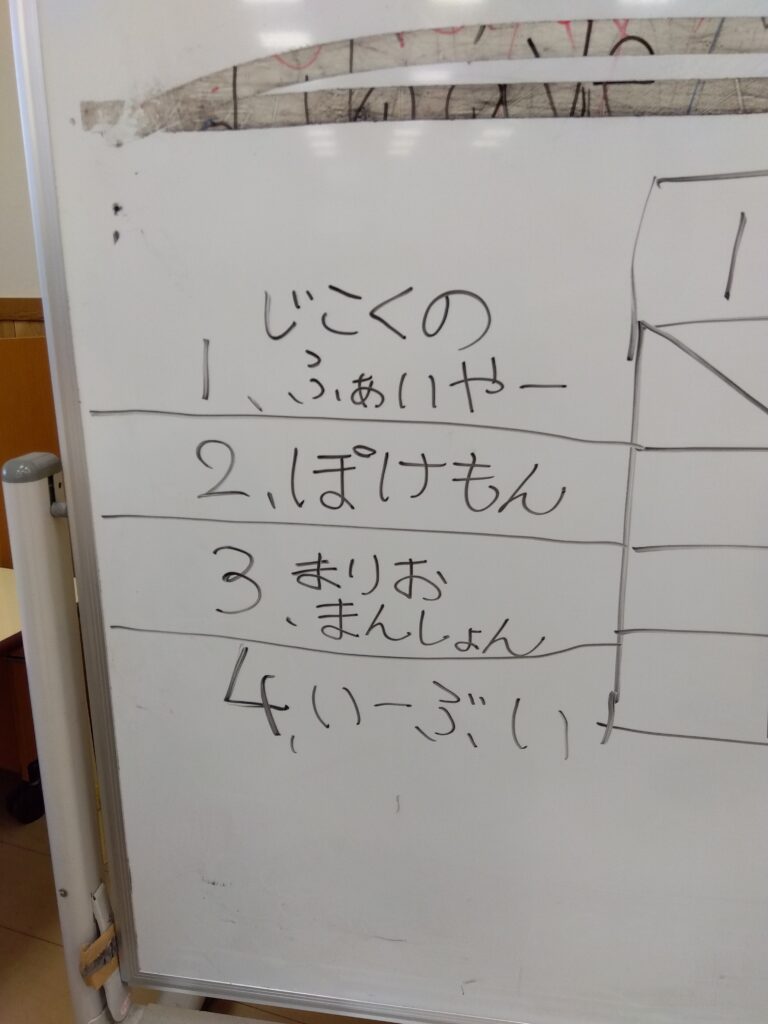 じこくの
1、ふぁいやー
2、ぽけもん
3、まりお
まんしょん
4、いーぶい
1